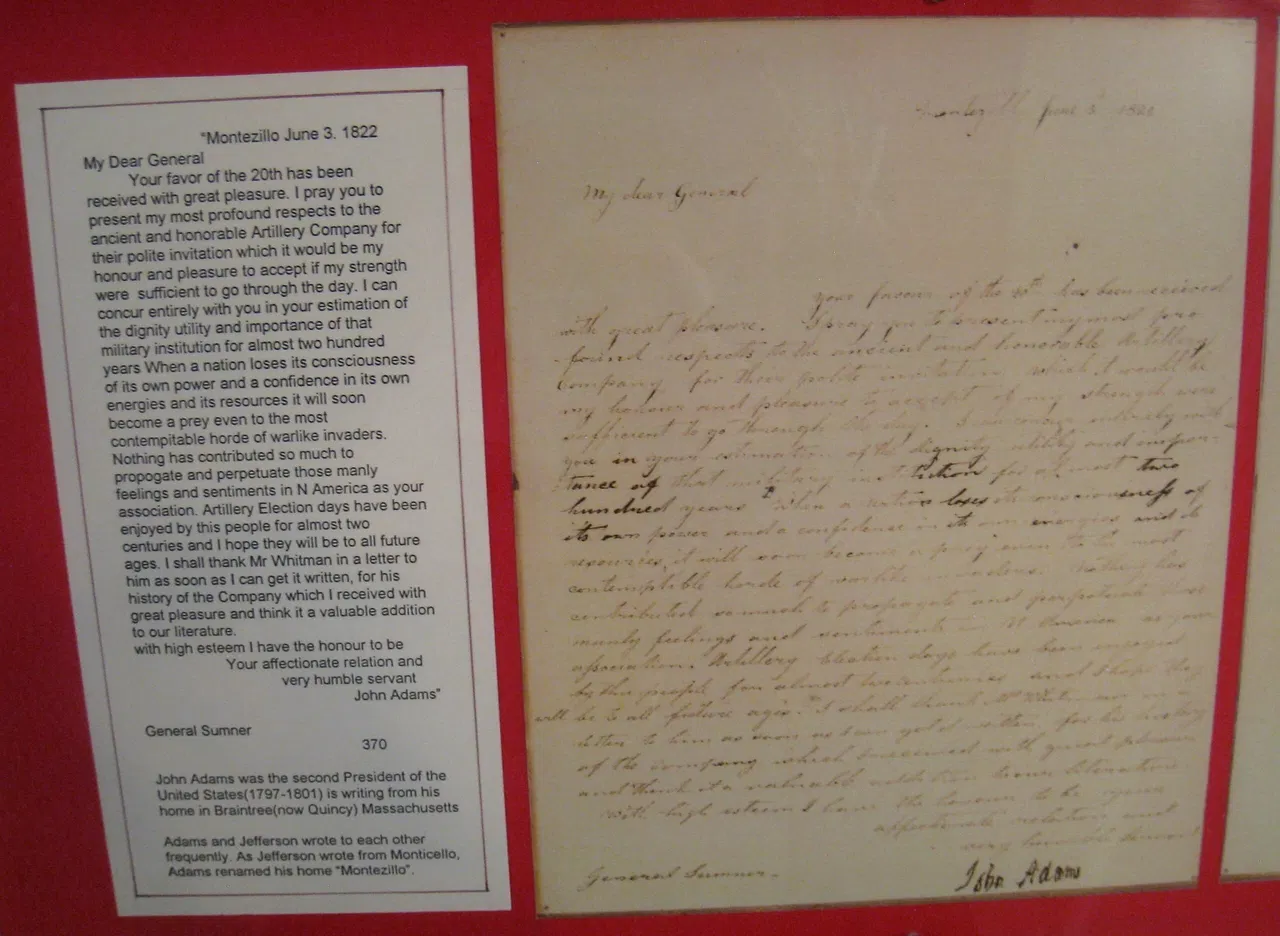 "Montezillo June 3. 1822
My Dear General
Your favor of the 20th has been
received with great pleasure. I pray you to
present my most profound respects to the
ancient and honorable Artillery Company for
their polite invitation which it would be my
honour and pleasure to accept if my strength
were sufficient to go through the day. I can
concur entirely with you in your estimation of
the dignity utility and importance of that
military institution for almost two hundred
years When a nation loses its consciousness
of its own power and a confidence in its own
energies and its resources it will soon
become a prey even to the most
contempitable horde of warlike invaders.
Nothing has contributed so much to
propogate and perpetuate those manly
feelings and sentiments in N America as your
association. Artillery Election days have been
enjoyed by this people for almost two
centuries and I hope they will be to all future
ages. I shall thank Mr Whitman in a letter to
him as soon as I can get it written, for his
history of the Company which I received with
great pleasure and think it a valuable addition
to our literature.
with high esteem I have the honour to be
Your affectionate relation and
very humble servant
John Adams"
General Sumner
370
John Adams was the second President of the
United States(1797-1801) is writing from his
home in Braintree(now Quincy) Massachusetts
Adams and Jefferson wrote to each other
frequently. As Jefferson wrote from Monticello,
Adams renamed his home "Montezillo".
June 3
My dear General
your favour of the 20th has been received
with great pleasure. I pray you to present my most pro
found respects to the ancient and honorable Artillery
Company for their polite invitation which it would be
my honour and pleasure to accept if my strength were
sufficient to go through the day. I concur entirely with
you in your estimation of the dignity utility and impor-
tance of that military institution for almost two
hundred years When a nation loses its consciousness of
its own power and a confidence in its own energies and its
resources, it will soon become a prey even to the most
contemptible horde of warlike invaders. Nothing has
contributed so much to propogate and perpetuate those
manly feelings and sentiments in N America as your
association. Artillery Election days have been enjoyed
by this people for almost two centuries and I hope they
will be to all future ages. I shall thank Mr Whitman in a
letter to him as soon as I can get it written, for his history
of the company which I received with great pleasure
and think it a valuable addition to our literature
with high esteem I have the honour to be your
affectionate relation and
very humble servant
John Adams
General Sumner.